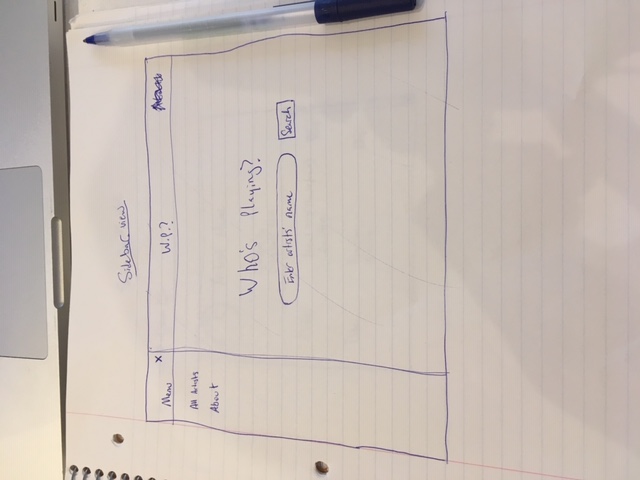 Sidebar view
Menu x W.P.?
All Artists
About
Who's Playing?
Enter artists' name Search